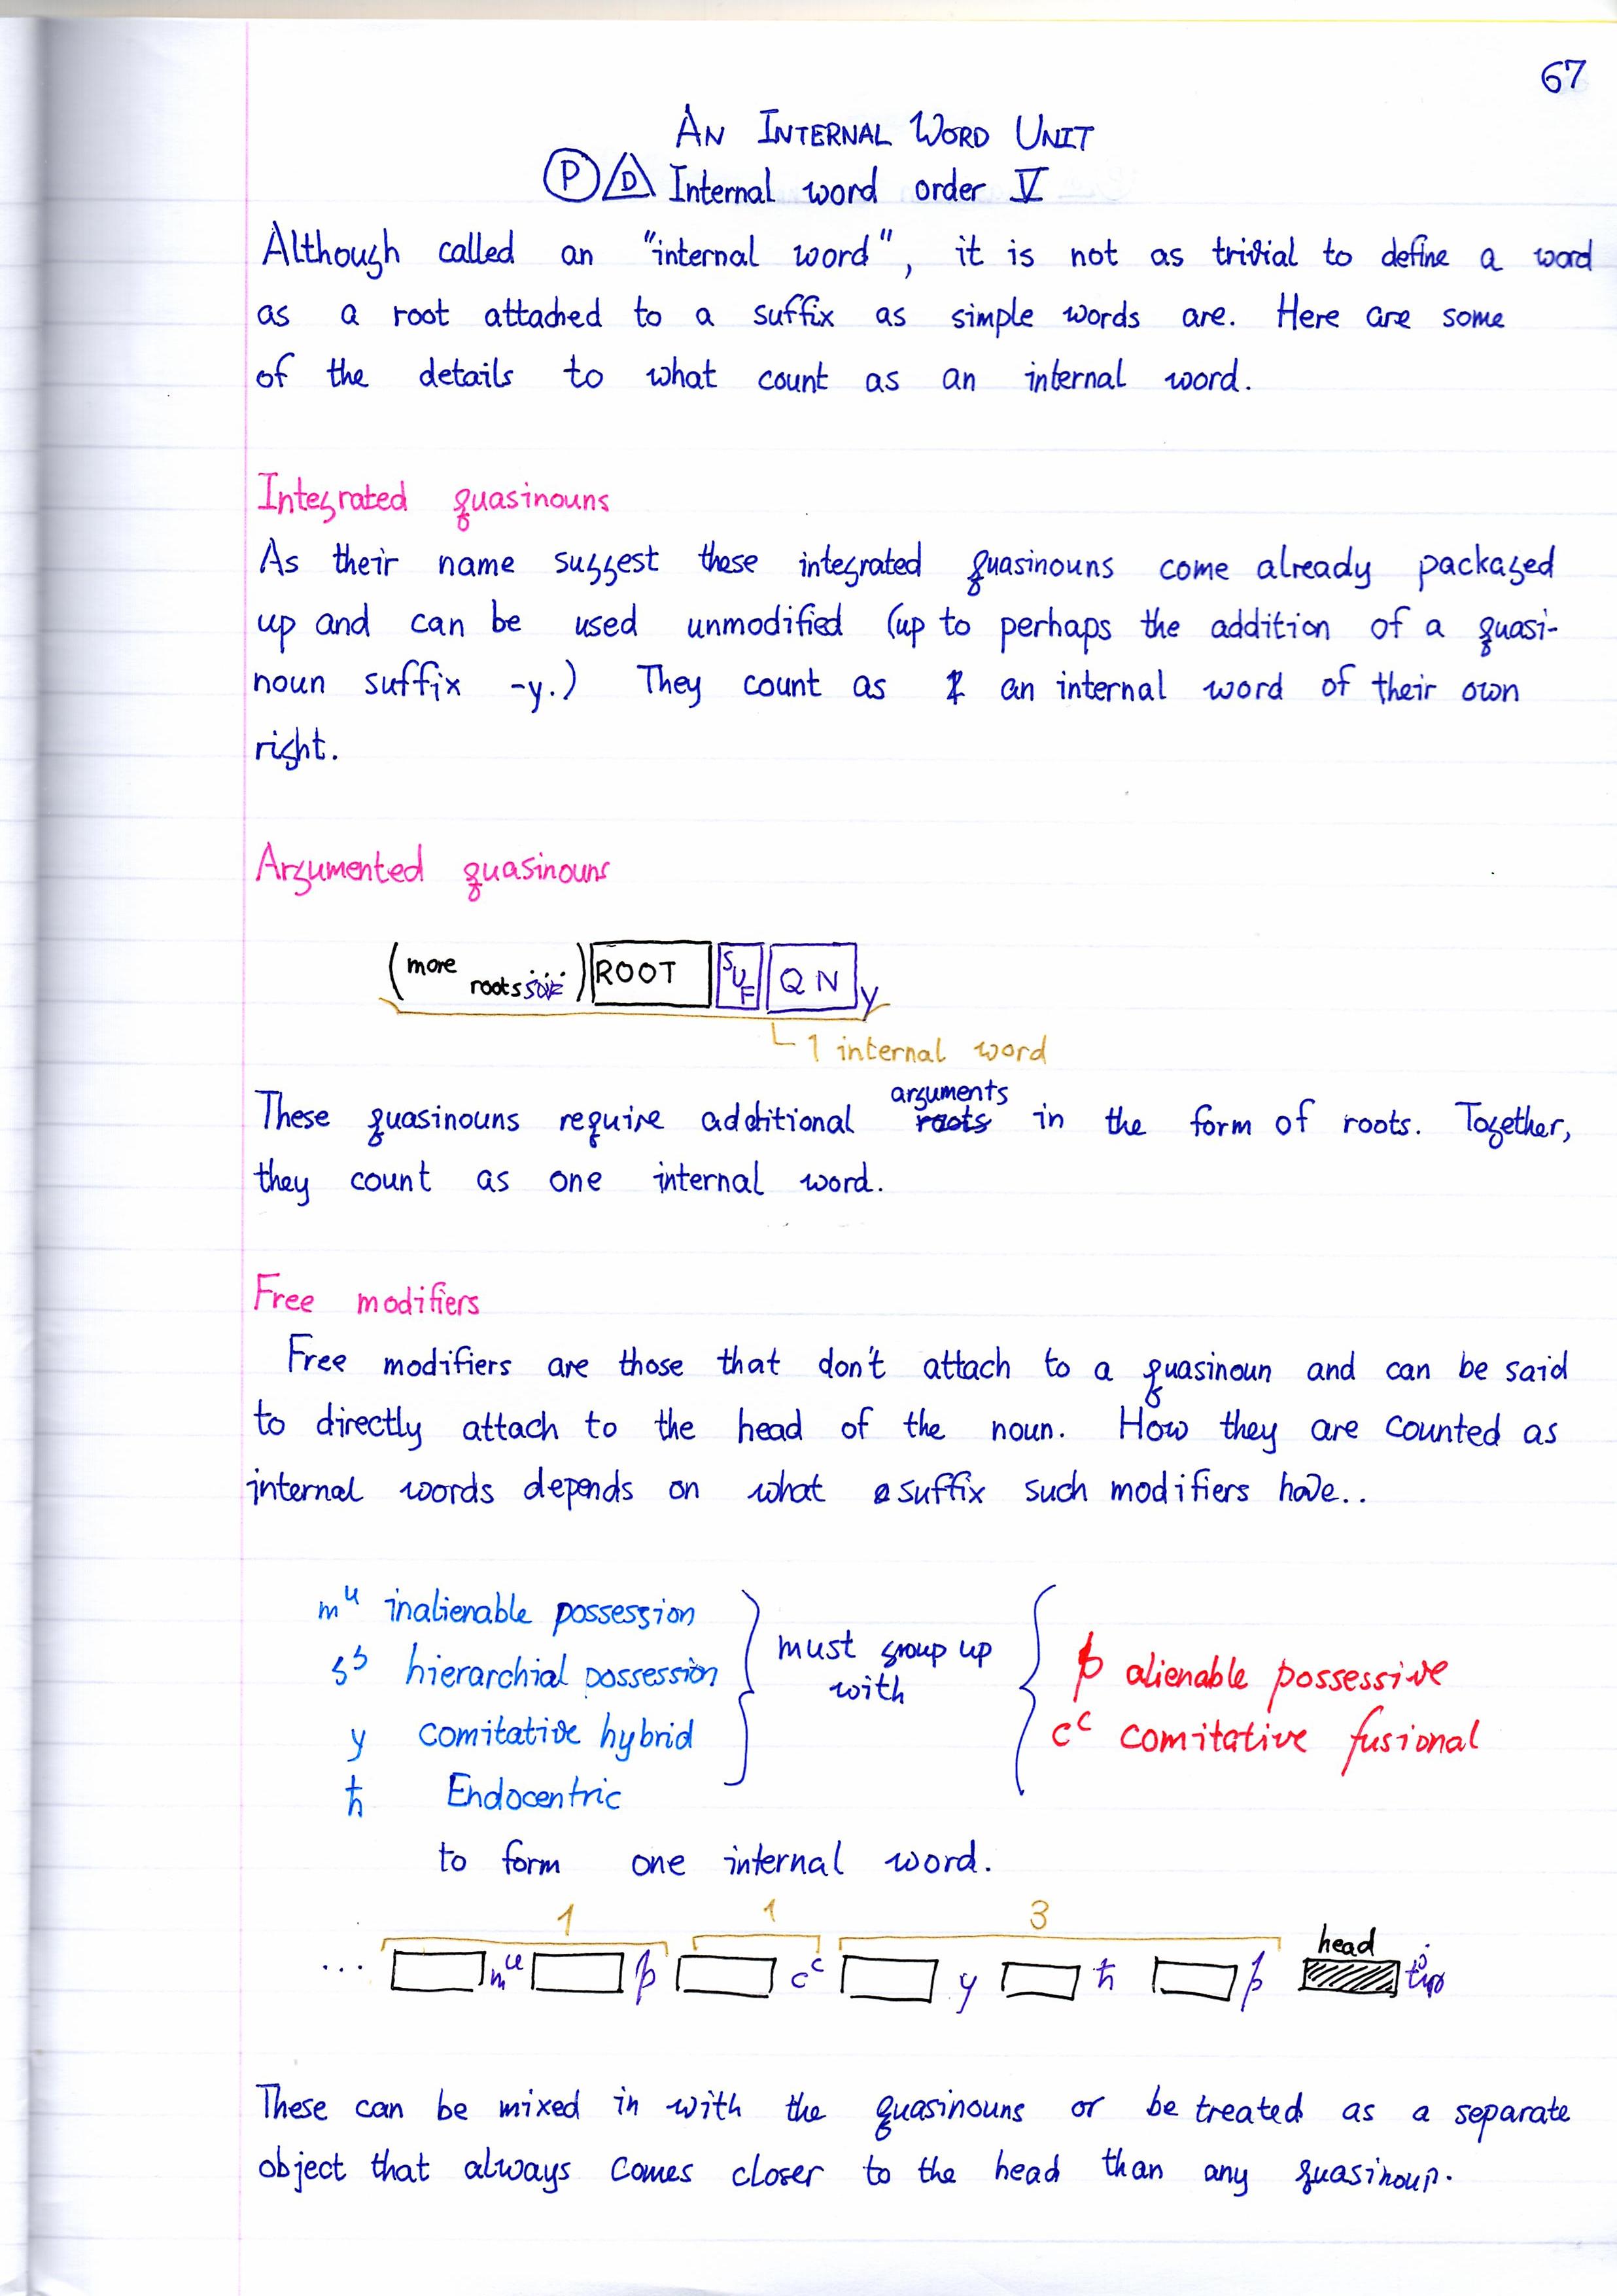 67
AN INTERNAL WORD UNIT
P D Internal word order V
Although called an "internal word", it is not as trivial to define a word
as a root attached to a suffix as simple words are. Here are some
of the details to what count as an internal word.
Integrated quasinouns
As their name suggest these integrated quasinouns come already packaged
up and can be used unmodified (up to perhaps the addition of a quasi-
noun suffix -y.) They count as an internal word of their own
right.
Argumented quasinouns
(more roots) ROOT SUF QN y
1 internal word
arguments
These quasinouns require additional roots in the form of roots. Together,
they count as one internal word.
Free modifiers
Free modifiers are those that don't attach to a quasinoun and can be said
to directly attach to the head of the noun. How they are counted as
internal words depends on what suffix such modifiers have..
mᵘ inalienable possession
sˢ hierarchial possession
y comitative hybrid
ħ Endocentric
must group up
with
þ alienable possessive
cᶜ comitative fusional
to form one internal word.
1 1 3
head
... mᵘ þ cᶜ y ħ þ
These can be mixed in with the quasinouns or be treated as a separate
object that always comes closer to the head than any quasinoun.